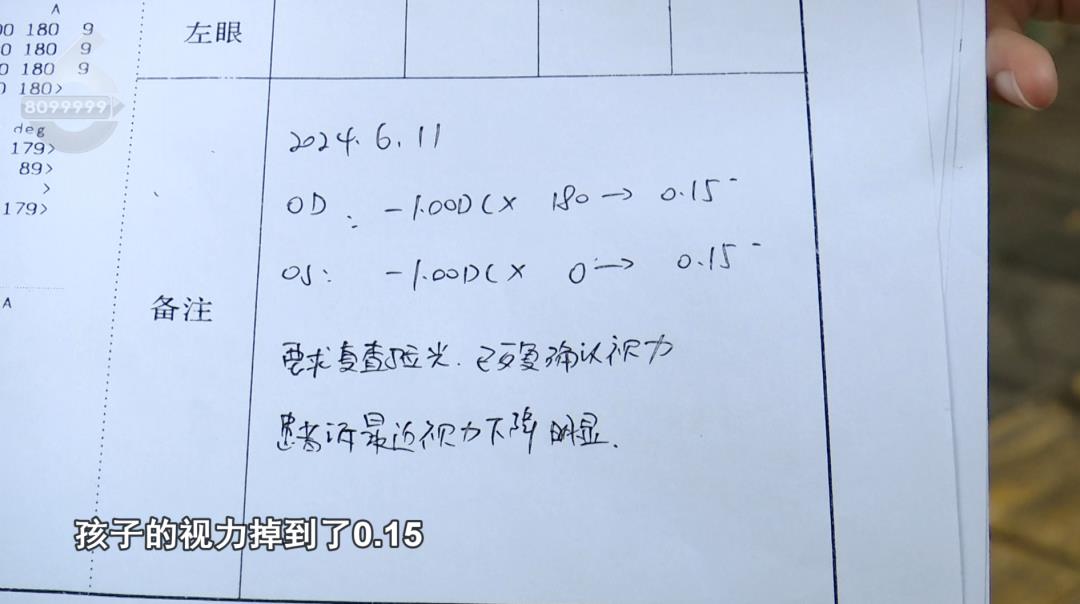 A
00 180 9
0 180 9
0 180 9
0 180>
8099999
deg
179>
89>
>
179>
A
左眼
备注
2024.6.11
OD: -1.00DC× 180→ 0.15⁻
OS: -1.00DC× 0→ 0.15⁻
要求复查验光.已反复确认视力
患者诉最近视力下降明显.
孩子的视力掉到了0.15